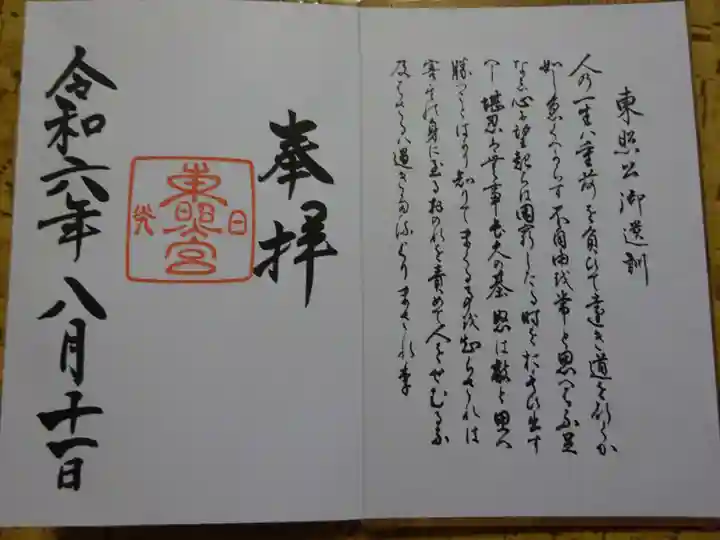 東照公御遺訓
人の一生ハ重荷を負ひて遠き道を行くか
如し急くへからす不自由越常と思へハ不足
なし心尓望起らは困窮したる時を於もひ出す
へし堪忍ハ無事長久の基怒は敵と思へ
勝つことはかり知りてまくる事越知らされは
害其の身に至るおのれを責めて人をせむるな
及はさるハ過きたるよりまされり
奉拝
日光
東照宮
令和六年八月十一日